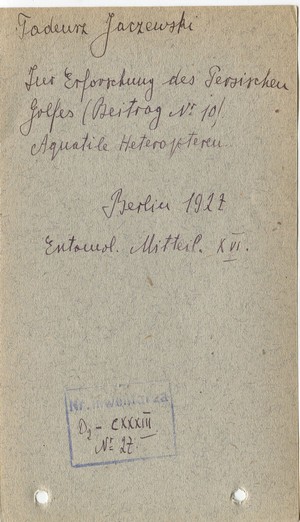 Tadeusz Jaczewski
Zur Erforschung des Persischen
Golfes (Beitrag Nr 10)
Aquatile Heteropteren
Berlin 1927
Entomol. Mitteil. XVI.
Nr. inwentarza
D2 - CXXXIII.
Nr 27.